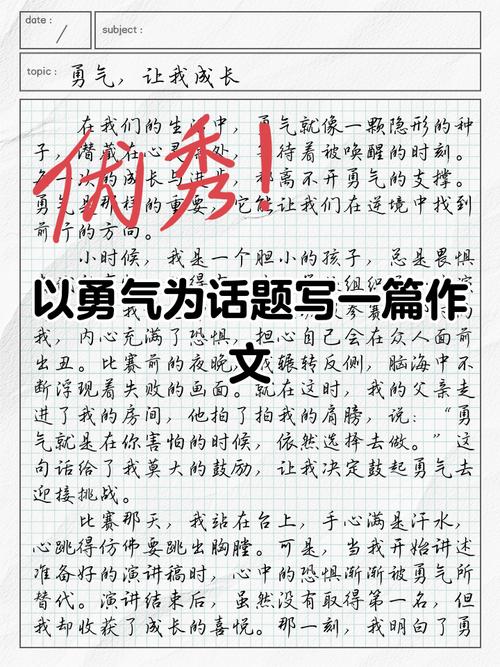 date :
subject :
topic : 勇气，让我成长
优秀！
以勇气为话题写一篇作
文
在我们的生 中，勇气就像一颗隐形的种
子，潜藏在心灵 处， 待着被唤醒的时刻。
每一次的成长与进步， 都离不开勇气的支撑。
勇气是那样的重要，它能让我们在逆境中找到
前行的方向。
小时候，我是一个胆小的孩子，总是畏惧
我，内心充满了恐惧，担心自己会在众人面前
出丑。比赛前的夜晚，我辗转反侧，脑海中不
断浮现着失败的画面。就在这时，我的父亲走
进了我的房间，他拍了拍我的肩膀，说：“勇
气就是在你害怕的时候，依然选择去做。”这
句话给了我莫大的鼓励，让我决定鼓起勇气去
迎接挑战。
比赛那天，我站在台上，手心满是汗水，
心跳得仿佛要跳出胸膛。可是，当我开始讲述
准备好的演讲稿时，心中的恐惧渐渐被勇气所
替代。演讲结束后，虽然没有取得第一名，但
我却收获了成长的喜悦。那一刻，我明白了勇